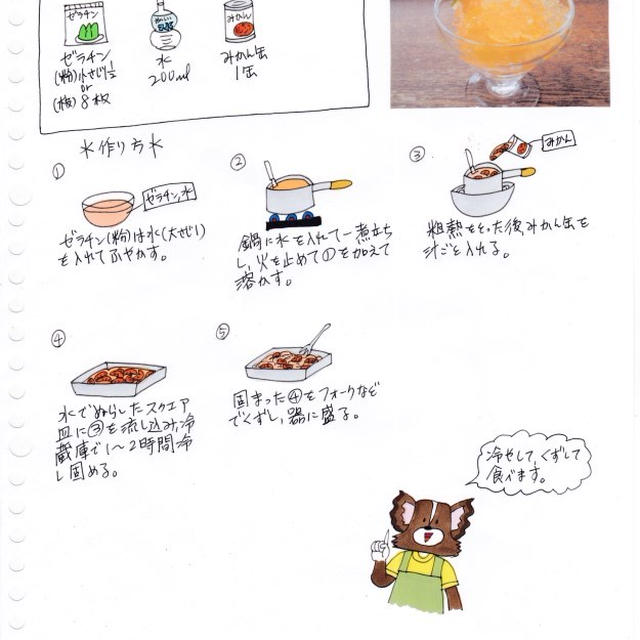 ゼラチン
(粉)小さじ1/2
or
(板)8枚
水
200ml
みかん缶
1缶
*作り方*
①
ゼラチン、水
ゼラチン(粉)は水(大さじ1)
を入れてふやかす。
②
鍋に水を入れて一煮立ち
し、火を止めて①を加えて
溶かす。
③
みかん
粗熱をとった後、みかん缶を
汁ごと入れる。
④
水でぬらしたスクエア
皿に③を流し込み、冷
蔵庫で1〜2時間冷
し固める。
⑤
固まった④をフォークなど
でくずし、器に盛る。
冷やして、くずして
食べます。